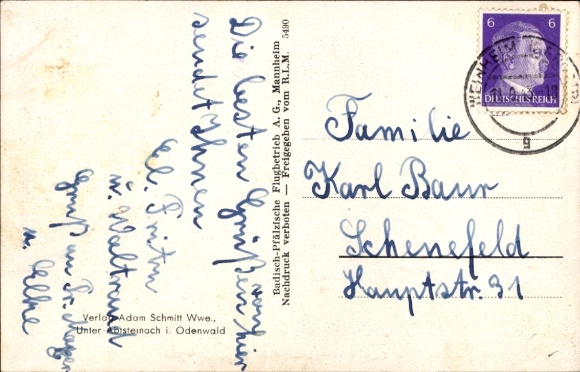 Die besten Grüße von hier
sendet Ihnen
El.
u. Waltrud
Gruß an
u.
Badisch-Pfälzische Flugbetrieb A. G., Mannheim
Nachdruck verboten — Freigegeben vom R.L.M. 5490
Verlag Adam Schmitt Wwe.,
Unter Abtsteinach i. Odenwald
6 6
DEUTSCHES REICH
WEINHEIM
g
Familie
Karl Baur
Schenefeld
Hauptstr. 31